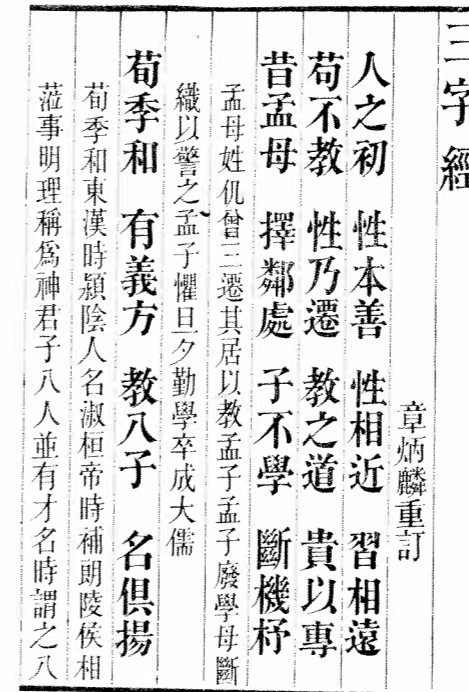 三字經
章炳麟重訂
人之初　性本善　性相近　習相遠
苟不教　性乃遷　教之道　貴以專
昔孟母　擇鄰處　子不學　斷機杼
孟母姓仉曾三遷其居以教孟子孟子廢學母斷
織以警之孟子懼旦夕勤學卒成大儒
荀季和　有義方　教八子　名俱揚
荀季和東漢時潁陰人名淑桓帝時補朗陵侯相
蒞事明理稱爲神君子八人並有才名時謂之八